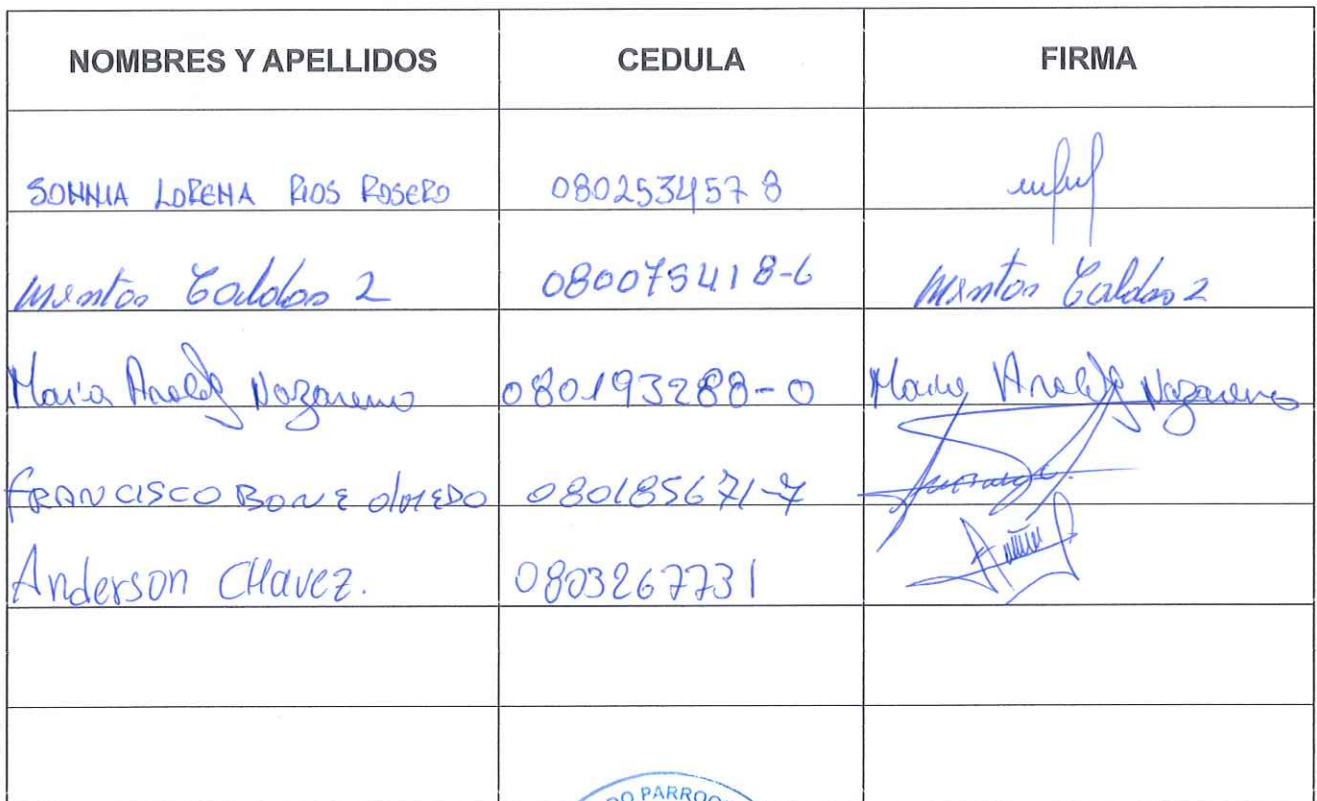 NOMBRES Y APELLIDOS CEDULA FIRMA
SONNIA LORENA RIOS ROSERO 0802534578
Caldas 2 080075418-6 Caldas 2
Maria Nazareno 080193288-0 Maria Nazareno
FRANCISCO BONE OLMEDO 080185671-7
Anderson CHavez. 0803267731
DO PARROQ